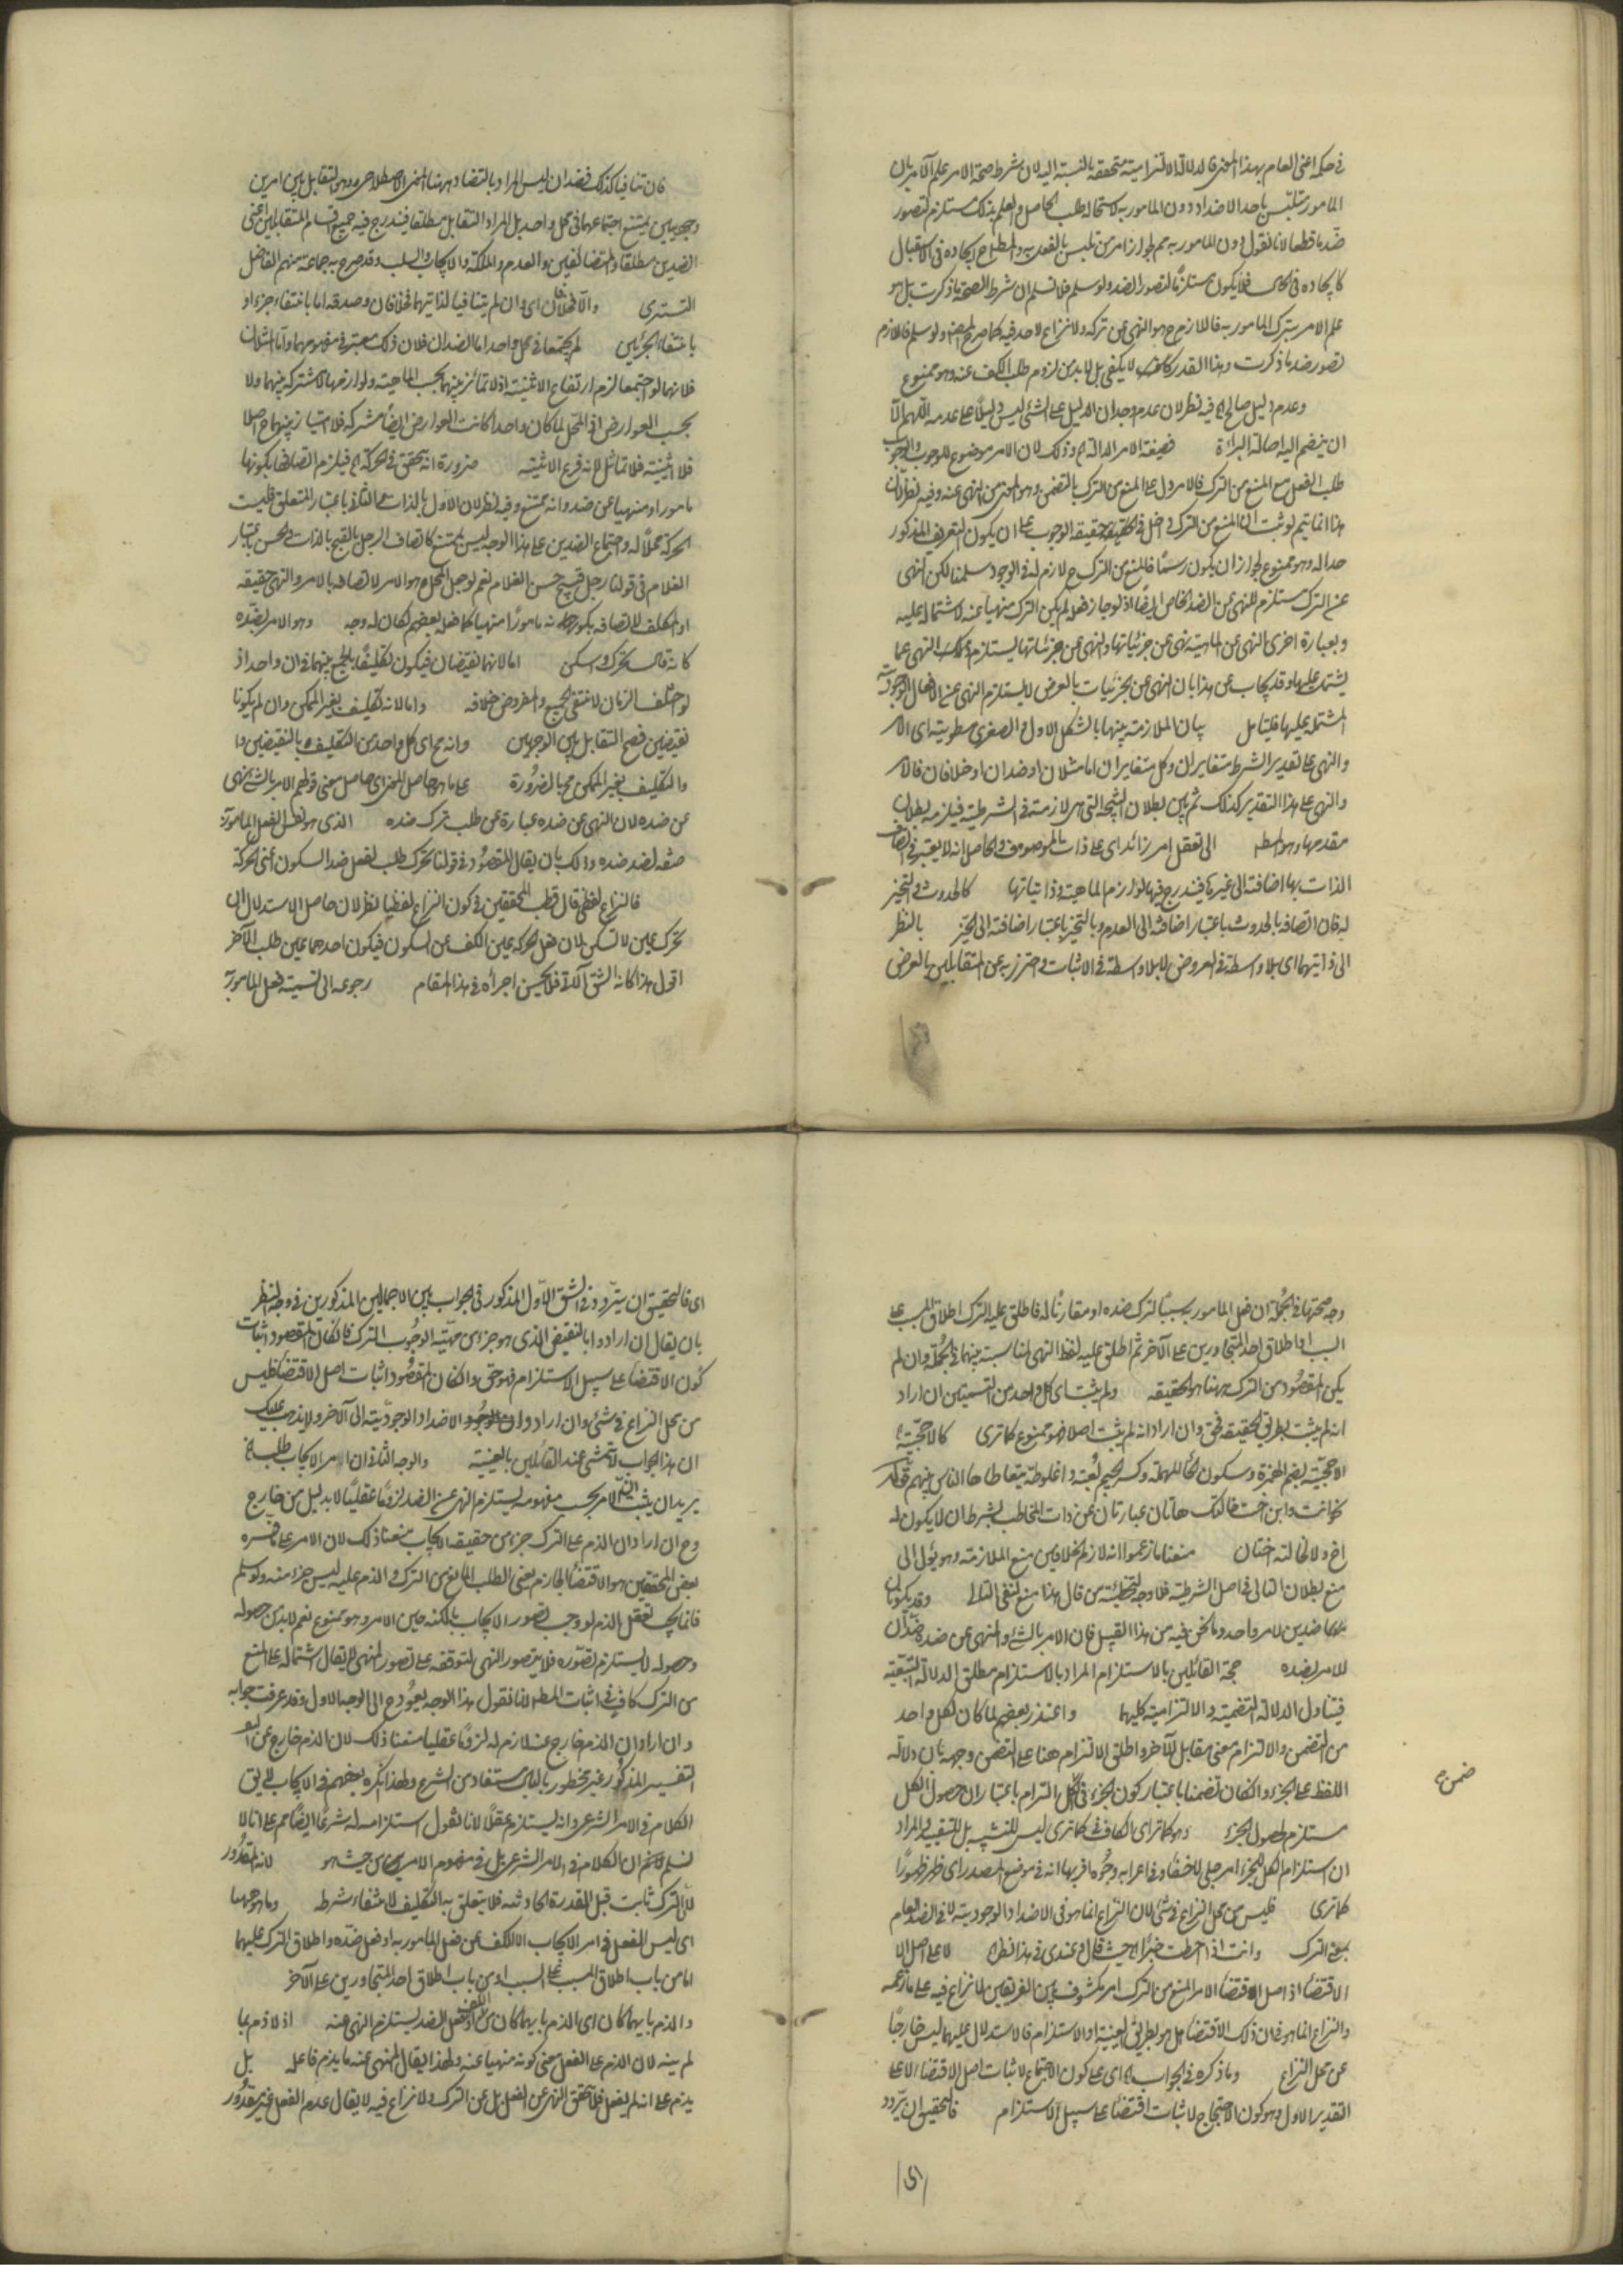 في حكمه اعنى العام بهذا المعنى فالدلالة الالتزامية متحققة بالنسبة اليه لان شرط صحة الامر علم الآمر بان
المامور متلبس باحد الاضداد دون المامور به لاستحالة طلب الحاصل والعلم بذلك مستلزم لتصور
ضده قطعا لانا نقول دون المامور به مم لجواز امر من تلبس بالفعل به والمطلوب ايجاده في الاستقبال
كايجاده في الحال فلا يكون مستلزما لتصور الضد ولو سلم فلا نسلم ان شرط الصحة ما ذكرت بل هو
علم الامر بترك المامور به فاللازم ح هو النهي عن تركه ولا نزاع لاحد فيه كما صرح به المص ولو سلم فاللازم
تصور ضده ما ذكرت وهذا القدر لا يكفى بل لابد من لزوم طلب الكف عنه وهو ممنوع
وعدم دليل صالح اه فيه نظر لان عدم وجدان الدليل على الشئ ليس دليلا على عدمه اللهم الا
ان ينضم اليه اصالة البراءة فصيغة الامر الدالة اه وذلك لان الامر موضوع للوجوب والوجوب
طلب الفعل مع المنع من الترك فالامر دل على المنع من الترك بالتضمن وهو المعنى من النهى عنه وفيه نظر لان
هذا انما يتم لو ثبت ان المنع من الترك داخل في حقيقة الوجوب على ان يكون التعريف المذكور
حدا له وهو ممنوع لجواز ان يكون رسما فالمنع من الترك ح لازم له في الوجود سلمنا لكن النهى
عن الترك مستلزم للنهي عن الضد الخاص ايضا اذ لو جاز فعله لم يكن الترك منهيا عنه لاشتماله عليه
وبعبارة اخرى النهى عن الماهية نهى عن جزئياتها والنهى عن جزئياتها يستلزم النهى عما
يشتمل عليها وقد يجاب عن هذا بان النهى عن الجزئيات بالعرض لا يستلزم النهى عن الافعال الوجودية
المشتملة عليها فليتامل بيان الملازمة بينها بالشكل الاول والصغرى مطوية اى الامر
والنهى على تقدير الشرط متغايران وكل متغايران اما مثلان او ضدان او خلافان فالامر
والنهى على هذا التقدير كذلك ثم يبين بطلان النتيجة التى هى لازمة في الشرطية فيلزمه بطلان
مقدمها وهو المط الى تعقل امر زائد اى على ذات الموصوف والحاصل انه لا يعتبر في اتصاف
الذات بها اضافتها الى غيرها فيندرج فيها لوازم الماهية وذاتياتها كالحدوث والتحيز
له فان اتصافه بالحدوث باعتبار اضافته الى العدم وبالتحيز باعتبار اضافته الى الحيز بالنظر
الى ذاتيهما اى بلا واسطة في العروض لا بلا واسطة في الاثبات واحترز به عن المتقابلين بالعرض
فان تنافيا كذلك فضدان ليس المراد بالتضاد ههنا المعنى الاصطلاحى وهو التقابل بين امرين
وجوديين يمتنع اجتماعهما في محل واحد بل المراد التقابل مطلقا فيندرج فيه جميع اقسام المتقابلين اعنى
الضدين مطلقا والمتضائفين والعدم والملكة والايجاب والسلب وقد صرح به جماعة منهم الفاضل
التسترى والا فخلافان اى وان لم يتنافيا لذاتيهما فخلافان وصدقه اما بانتفاء جزء او
بانتفاء الجزئين لم يجتمعا في محل واحد اما الضدان فلان ذلك معتبر في مفهومهما واما المثلان
فلانهما لو اجتمعا لزم ارتفاع الاثنينية اذ لا تمايز بينهما بحسب الماهية ولوازمها لاشتركه بينهما ولا
بحسب العوارض اذ المحل لما كان واحدا كانت العوارض ايضا مشتركة فلا امتياز بينهما ح اصلا
فلا اثنينية فلا تماثل لانه فرع الاثنينية ضرورة انه يتحقق في الحركة اه فيلزم اتصافها بكونها
مامورا ومنهيا عن ضده وانه ممتنع وفيه نظر لان الاول بالذات والثانى باعتبار المتعلق فليست
الحركة محلا له واجتماع الضدين على هذا الوجه ليس بممتنع كاتصاف الرجل بالقبح بالذات والحسن باعتبار
الغلام في قولنا رجل قبيح حسن الغلام نعم لو جعل المحل هو الامر لاتصافه بالامر والنهى حقيقة
او المكلف لاتصافه بكونه مامورا منهيا كما فعله بعضهم لكان له وجه وهو الامر بضده
كانه قال تحرك واسكن اما لانهما نقيضان فيكون تكليفا بالجمع بينهما في ان واحد اذ
لو اختلف الزمان لانتفى الجميع والمفروض خلافه واما لانه تكليف بغير الممكن وان لم يكونا
نقيضين فصح التقابل بين الوجهين وانه مح اى كل واحد من التكليف بالنقيضين وا
والتكليف بغير الممكن مح بالضرورة على ما هو حاصل المعنى اى حاصل معنى قولهم الامر بالشئ نهى
عن ضده لان النهى عن ضده عبارة عن طلب ترك ضده الذى هو نفس الفعل المامور به
صفة لضد ضده وذلك بان يقال المقصود في قولنا تحرك طلب لفعل ضد السكون اعنى الحركة
فالنزاع لفظى قال قطب المحققين في كون النزاع لفظيا نظر لان حاصل الاستدلال ان
تحرك عين لا تسكن لان فعل الحركة عين الكف عن السكون فيكون احدهما عين طلب الآخر
اقول هذا كانه الشق الآتى فلا يحسن اجراؤه في هذا المقام رجوعه الى تسمية فعل المامور به
وجه صحتها في الجملة ان فعل المامور به سببا لترك ضده او مقارنا له فاطلق عليه الترك اطلاق المسبب على
السبب او اطلاق احد المتجاورين على الآخر ثم اطلق عليه لفظ النهى لمناسبة بينهما في الجملة وان لم
يكن المقصود من الترك ههنا هو الحقيقة ولم يثبت اى كل واحد من التسميتين ان اراد
انه لم يثبت بطريق الحقيقة فحق وان اراد انه لم يثبت اصلا فهو ممنوع كما ترى كالاحجية
الاحجية بضم الهمزة وسكون الحاء المهملة وكسر الجيم لعبة واغلوطة يتعاطاها الناس بينهم
نحو انت وابن اخت خالتك هاتان عبارتان عن ذات المخاطب بشرط ان لا يكون له
اخ ولا لخالته اختان منعنا ما زعموا انه لازم للخلافين منع الملازمة وهو يؤل الى
منع بطلان التالى في اصل الشرطية فلا وجه لتخطئة من قال هذا منع لنفى التالى وقد يكونان
ضدين لامر واحد وما نحن فيه من هذا القبيل فان الامر بالشئ والنهى عن ضده ضدان
للامر بضده حجة القائلين بالاستلزام المراد بالاستلزام مطلق الدلالة التبعية
فيتناول الدلالة التضمنية والالتزامية كليهما واعتذر بعضهم لما كان لكل واحد
من التضمن والالتزام معنى مقابل للآخر واطلق الالتزام هنا على التضمن وجهه بان دلالة
اللفظ على الجزء وان كان تضمنا باعتبار كون الجزء في ضمن الكل التزام باعتبار ان حصول الكل
مستلزم لحصول الجزء وهو كما ترى الكاف في كما ترى ليس للتشبيه بل للتنبيه والمراد
ان استلزام الكل للجزء امر جلى لا خفاء وفي اعرابه وجوه اقربها انه في موضع المصدر اى ظهر ظهورا
كما ترى فليس من محل النزاع في شئ لان النزاع انما هو في الاضداد الوجودية لا في الضد العام
بمعنى الترك وانت اذا احطت خبرا اه حيث قال وعندى في هذا نظر اه لا على اصل الا
الاقتضاء اذ اصل اقتضاء الامر المنع من الترك امر مكشوف بين الفريقين لا نزاع فيه على ما زعمه
والنزاع انما هو في ان ذلك الاقتضاء هل هو بطريق العينية او الاستلزام فالاستدلال عليهما ليس خارجا
عن محل النزاع وما ذكره في الجواب اه اى على كون الاحتجاج لاثبات اصل الاقتضاء لا على
التقدير الاول وهو كون الاحتجاج لاثبات اقتضاء على سبيل الاستلزام فالتحقيق ان يردد
ضمن ع
اى فالتحقيق ان يتردد في الشق الاول المذكور في الجواب بين الاحتمالين المذكورين في وجه النظر
بان يقال ان ارادوا بالنقيض الذى هو جزء من مهية الوجوب الترك فان كان المقصود اثبات
كون الاقتضاء على سبيل الاستلزام فهو حق وان كان المقصود اثبات اصل الاقتضاء فليس
من محل النزاع في شئ وان ارادوا الاضداد الوجودية الى آخره ولا يذهب عليك
ان هذا الجواب لا يتمشى عند القائلين بالعينية والوجه الثانى ان امر الايجاب طلب اه
يريد ان يثبت ان الامر بحسب مفهومه يستلزم النهى عن الضد لزوما عقليا لا بدليل من خارج
وح ان اراد ان الذم على الترك جزء من حقيقة الايجاب منعنا ذلك لان الامر على ما فسره
بعض المحققين هو الاقتضاء الجازم يعنى الطلب المانع من الترك والذم عليه ليس جزء منه ولو سلم
فانما يجب تعقل الذم لو وجب تصور الايجاب بالكنه حين الامر وهو ممنوع نعم لابد من حصوله
وحصوله لا يستلزم تصوره فلا يتصور النهى لتوقفه على تصور المنهى لا يقال اشتماله على المنع
من الترك كاف في اثبات المط لانا نقول هذا الوجه يعود ح الى الوجه الاول وقد عرفت جوابه
وان اراد ان الذم خارج عنه لازم له لزوما عقليا منعنا ذلك لان الذم خارج عن
التفسير المذكور غير مخطور بالبال مستفاد من الشرع ولهذا انكره بعضهم في الايجاب لا يق
الكلام في الامر الشرعى وانه يستلزم عقلا لانا نقول استلزامه له شرعا ايضا مم على انا لا
نسلم ان الكلام في الامر الشرعى بل في مفهوم الامر من حيث هو لانه المقدور
لان الترك ثابت قبل القدرة الحادثة فلا يتعلق به التكليف لانتفاء شرطه وما هو ههنا
اى ليس الفعل في امر الايجاب الا الكف عن فعل المامور به او فعل ضده واطلاق الترك عليهما
اما من باب اطلاق المسبب على السبب او من باب اطلاق احد المتجاورين على الآخر
والذم بايهما كان اى الذم بايهما كان من الكف او فعل الضد يستلزم النهى عنه اذ لا ذم بما
لم ينه لان الذم على الفعل معنى كونه منهيا عنه ولهذا يقال المنهى عنه ما يذم فاعله بل
يذم على انه لم يفعل فلا تحقق النهى عن الفعل بل عن الترك ولا نزاع فيه لا يقال عدم الفعل غير مقدور